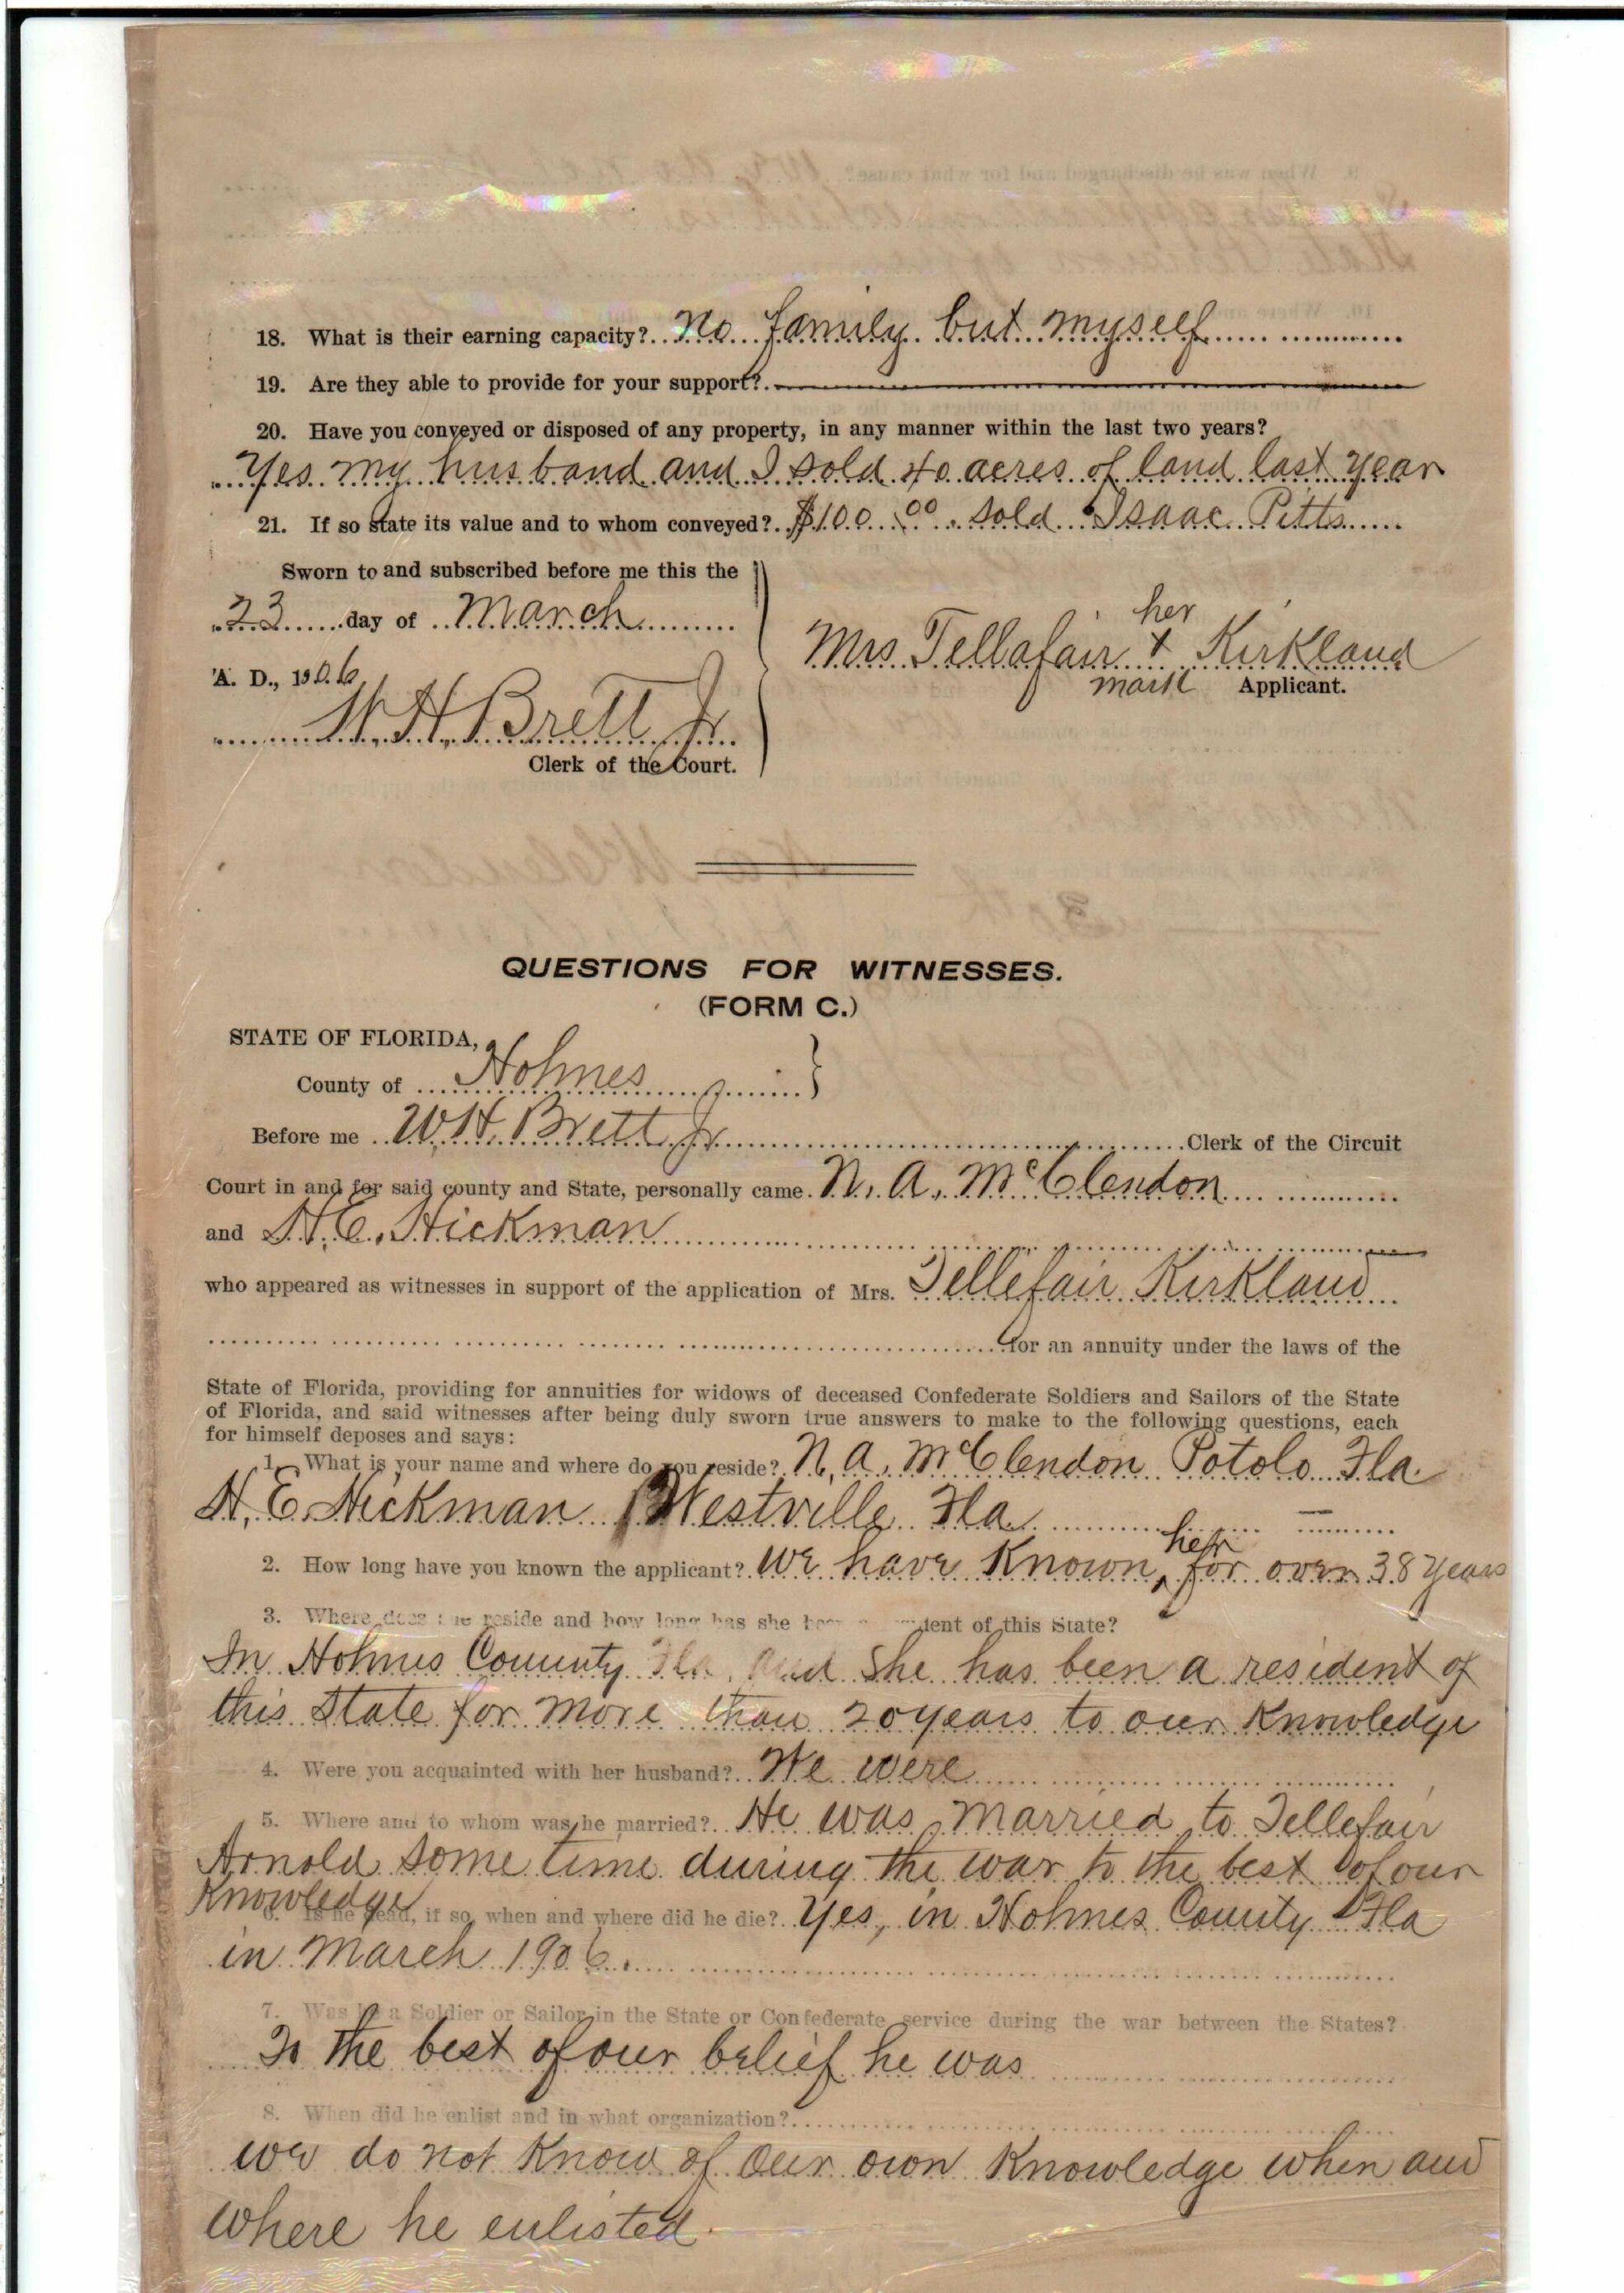 18. What is their earning capacity? No family but myself
19. Are they able to provide for your support?
20. Have you conveyed or disposed of any property, in any manner within the last two years?
Yes my husband and I sold 40 acres of land last year
21. If so state its value and to whom conveyed? $100.00 sold Isaac Pitts
Sworn to and subscribed before me this the
23 day of March
A. D., 1906
her
Mrs Tellafair x Kirkland
mark Applicant.
W. H. Brett Jr
Clerk of the Court.
QUESTIONS FOR WITNESSES.
(FORM C.)
STATE OF FLORIDA,
County of Holmes
Before me W. H. Brett Jr Clerk of the Circuit
Court in and for said county and State, personally came N. A. McClendon
and H. E. Hickman
who appeared as witnesses in support of the application of Mrs. Tellefair Kirkland
for an annuity under the laws of the
State of Florida, providing for annuities for widows of deceased Confederate Soldiers and Sailors of the State
of Florida, and said witnesses after being duly sworn true answers to make to the following questions, each
for himself deposes and says:
1. What is your name and where do you reside? N. A. McClendon Potolo Fla.
H. E. Hickman Westville Fla
2. How long have you known the applicant? We have known her for over 38 years
3. Where does she reside and how long has she been a resident of this State?
In Holmes County Fla. and she has been a resident of
this State for more than 20 years to our knowledge
4. Were you acquainted with her husband? We were
5. Where and to whom was he married? He was married to Tellefair
Arnold some time during the war to the best of our
knowledge
6. Is he dead, if so, when and where did he die? Yes, in Holmes County Fla
in March 1906.
7. Was he a Soldier or Sailor in the State or Confederate service during the war between the States?
To the best of our belief he was
8. When did he enlist and in what organization?
we do not know of our own knowledge when and
where he enlisted.